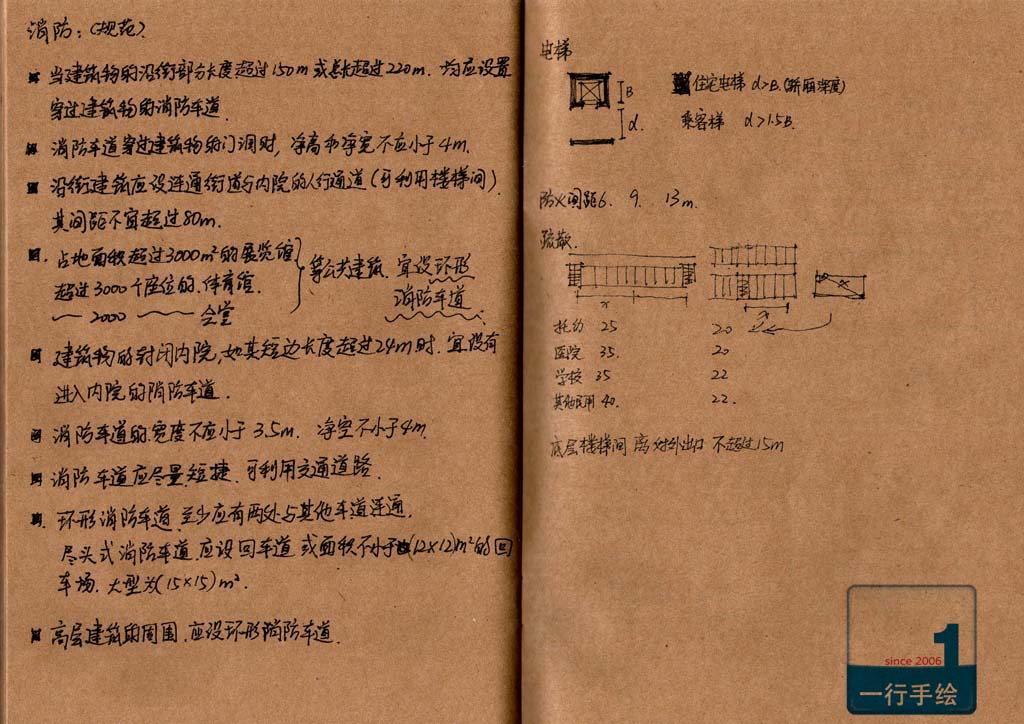 消防：(规范).
当建筑物的沿街部分长度超过150m或总长超过220m. 均应设置
穿过建筑物的消防车道.
消防车道穿过建筑物的门洞时, 净高和净宽不应小于4m.
沿街建筑应设连通街道与内院的人行通道(可利用楼梯间).
其间距不宜超过80m.
占地面积超过3000m²的展览馆
超过3000个座位的.体育馆.
2000 会堂
等公共建筑. 宜设环形
消防车道
建筑物的封闭内院,如其短边长度超过24m时. 宜设有
进入内院的消防车道.
消防车道的.宽度不应小于3.5m. 净空不小于4m.
消防车道应尽量.短捷. 可利用交通道路.
环形消防车道.至少应有两处与其他车道连通.
尽头式消防车道.应设回车道 或面积不小于(12×12)m²的回
车场. 大型为(15×15)m².
高层建筑的周围.应设环形消防车道.
电梯
B
d.
住宅电梯 d>B.(轿厢深度)
乘客梯 d>1.5B.
防火间距6. 9. 13m.
疏散.
x
x
托幼 25 20
医院 35. 20
学校 35 22
其他民用 40. 22.
底层楼梯间 离对外出口 不超过15m
1
since 2006
一行手绘